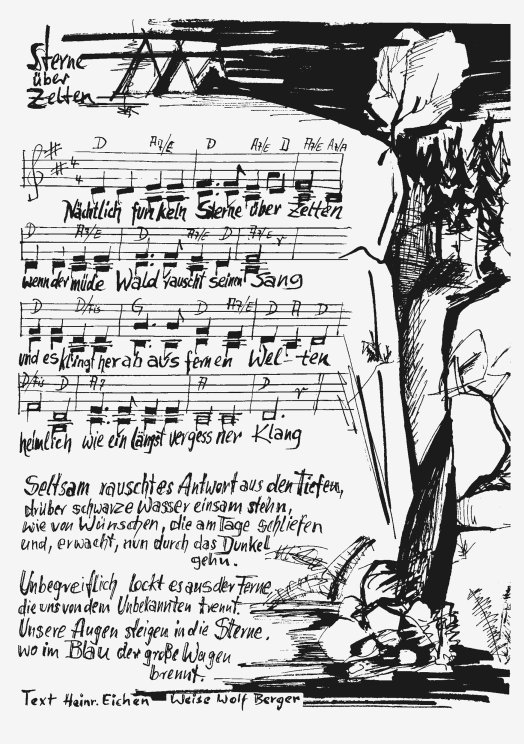 Sterne
über
Zelten
D A7/E D A7/E D A7/E A7/A
Nächtlich funkeln Sterne über Zelten
D A7/E D A7/E D A7/E
wenn der müde Wald rauscht seinen Sang
D D/Fis G D A7/E D A D
und es klingt herab aus fernen Wel-ten
D/Fis D A7 A D
heimlich wie ein längst vergess'ner Klang
Seltsam rauscht es Antwort aus den Tiefen,
drüber schwarze Wasser einsam stehn,
wie von Wünschen, die am Tage schliefen
und, erwacht, nun durch das Dunkel
gehn.
Unbegreiflich lockt es aus der Ferne
die uns von dem Unbekannten trennt.
Unsere Augen steigen in die Sterne,
wo im Blau der große Wagen
brennt.
Text Heinr. Eichen Weise Wolf Berger